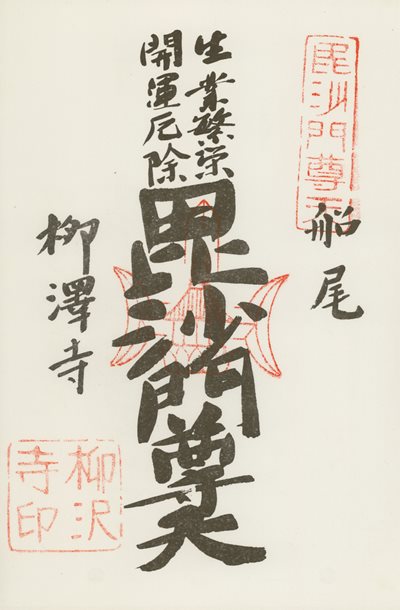 毘沙門尊天
船尾
生業繁栄
開運厄除
毘沙門尊天
柳澤寺
柳沢
寺印